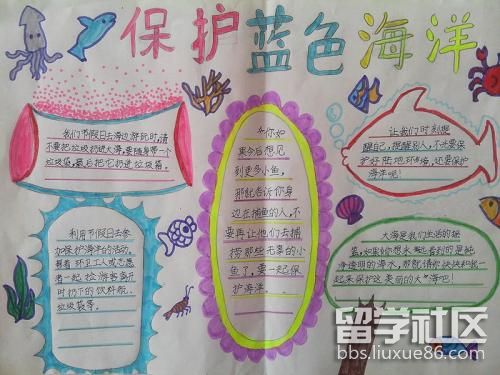 保护蓝色海洋
我们节假日去海边游玩时,请
不要把垃圾扔进大海,要随身带一个
垃圾袋,最后把它扔进垃圾箱。
你如
果今后想见
到更多小鱼,
那就告诉你身
边在捕鱼的人,不
要再让他们去捕
捞那些无辜的小
鱼了,要一起保
护海洋
让我们时刻提
醒自己,提醒别人,不光要保
护好陆地环境,还要保
护海洋呢!
利用节假日去参
加保护海洋的活动。
跟着环卫工人或志愿
者一起捡游客随
时扔下的饮料瓶、
垃圾袋等。
大海是我们生活的摇
篮,如果你想永远看到的是纯
净漂亮的海水,那就请你快快和我一
起来保护这美丽的大海吧!
留学社区
bbs.liuxue86.com